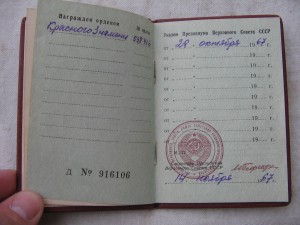 Награжден орденом
№ ордена
Красного Знамени
Д № 916106
Указом Президиума Верховного Совета СССР
от 28 октября 1967 г.
от 19 г.
от 19 г.
от 19 г.
от 19 г.
от 19 г.
от 19 г.
М.П.
Президиума
Верховного Совета СССР
14 ноября 67.